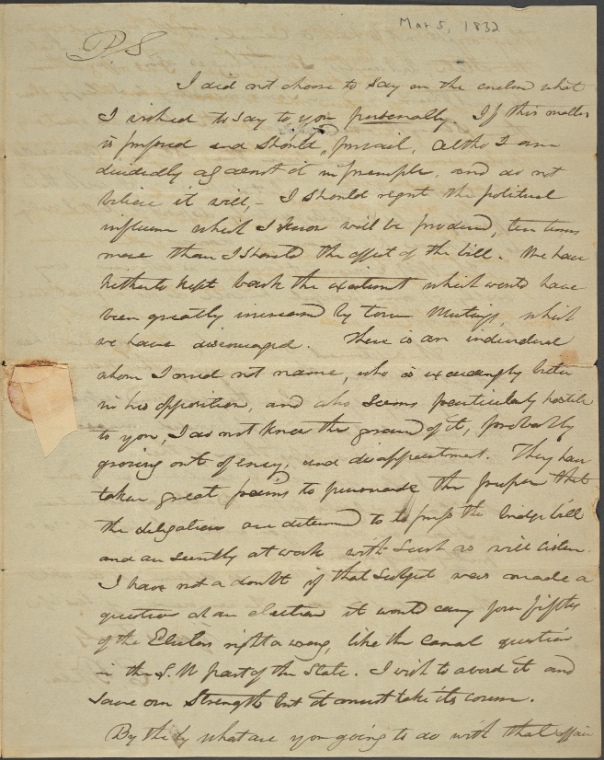 Mar 5, 1832
P S
I did not choose to say on the enclosed what
I wished to say to you personally. If this matter
is proposed and should prevail, altho I am
decidedly against it in principle, and do not
believe it will, - I should regret the political
influence which I know will be produced, ten times
more than I should the effect of the bill. We have
hitherto kept back the excitement which would have
been greatly increased by town Meetings, which
we have discouraged. There is an individual
whom I need not name, who is exceedingly bitter
in his opposition, and who seems particularly hostile
to you, I do not know the ground of it, probably
growing out of envy, and disappointment. They have
taken great pains to persuade the people that
the delegation are determined to to press the bridge bill
and are secretly at work with such as will listen.
I have not a doubt if that subject was made a
question at an election it would carry four fifths
of the Electors right or wrong, like the Canal question
in the S. W part of the State. I wish to avoid it and
save our Strength but it must take its course.
By the by what are you going to do with that affair